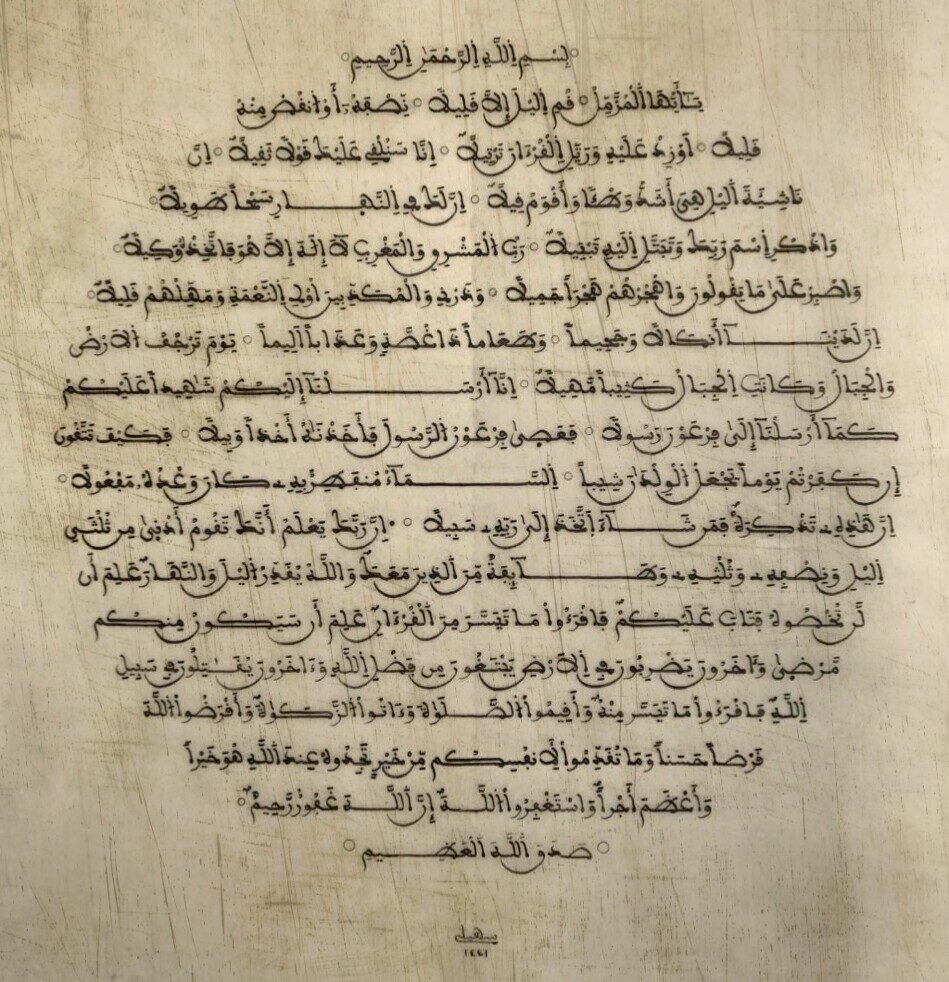 بِسْمِ اِللَّهِ اِلرَّحْمَٰنِ اِلرَّحِيمِ
يَٰٓأَيُّهَا اَلْمُزَّمِّلُ قُمِ اِليْلَ إِلَّا قَلِيلًا نِّصْفَهُۥٓ أَوُ اُنقُصْ مِنْهُ
قَلِيلًا اَوْ زِدْ عَلَيْهِ وَرَتِّلِ اِلْقُرْءَانَ تَرْتِيلًا اِنَّا سَنُلْقِي عَلَيْكَ قَوْلًا ثَقِيلًا اِنَّ
نَاشِئَةَ اَليْلِ هِيَ أَشَدُّ وَطْئًا وَأَقْوَمُ قِيلًا اِنَّ لَكَ فِي اِلنَّهَارِ سَبْحاً طَوِيلًا
وَاذْكُرِ اِسْمَ رَبِّكَ وَتَبَتَّلِ اِلَيْهِ تَبْتِيلًا رَّبُّ اُلْمَشْرِقِ وَالْمَغْرِبِ لَا إِلَٰهَ إِلَّا هُوَ فَاتَّخِذْهُ وَكِيلًا
وَاصْبِرْ عَلَىٰ مَا يَقُولُونَ وَاهْجُرْهُمْ هَجْراً جَمِيلًا وَذَرْنِي وَالْمُكَذِّبِينَ أُوْلِي اِلنَّعْمَةِ وَمَهِّلْهُمْ قَلِيلًا
اِنَّ لَدَيْنَآ أَنكَالًا وَجَحِيماً وَطَعَاماً ذَا غُصَّةٍ وَعَذَاباً اَلِيماً يَوْمَ تَرْجُفُ اُلَارْضُ
وَالْجِبَالُ وَكَانَتِ اِلْجِبَالُ كَثِيباً مَّهِيلًا اِنَّآ أَرْسَلْنَآ إِلَيْكُمْ رَسُولًا شَٰهِداً عَلَيْكُمْ
كَمَآ أَرْسَلْنَآ إِلَىٰ فِرْعَوْنَ رَسُولًا فَعَصَىٰ فِرْعَوْنُ اُلرَّسُولَ فَأَخَذْنَٰهُ أَخْذاً وَبِيلًا فَكَيْفَ تَتَّقُونَ
إِن كَفَرْتُمْ يَوْماً يَجْعَلُ اُلْوِلْدَٰنَ شِيباً اِلسَّمَآءُ مُنفَطِرٌۢ بِهِۦ كَانَ وَعْدُهُۥ مَفْعُولًا
اِنَّ هَٰذِهِۦ تَذْكِرَةٌ فَمَن شَآءَ اَتَّخَذَ إِلَىٰ رَبِّهِۦ سَبِيلًا اِنَّ رَبَّكَ يَعْلَمُ أَنَّكَ تَقُومُ أَدْنَىٰ مِن ثُلُثَيِ
اِليْلِ وَنِصْفِهِۦ وَثُلُثِهِۦ وَطَآئِفَةٌ مِّنَ اَلذِينَ مَعَكَ وَاللَّهُ يُقَدِّرُ اُليْلَ وَالنَّهَارَ عَلِمَ أَن
لَّن تُحْصُوهُ فَتَابَ عَلَيْكُمْ فَاقْرَءُواْ مَا تَيَسَّرَ مِنَ اَلْقُرْءَانِ عَلِمَ أَن سَيَكُونُ مِنكُم
مَّرْضَىٰ وَءَاخَرُونَ يَضْرِبُونَ فِي اِلَارْضِ يَبْتَغُونَ مِن فَضْلِ اِللَّهِ وَءَاخَرُونَ يُقَٰتِلُونَ فِي سَبِيلِ
اِللَّهِ فَاقْرَءُواْ مَا تَيَسَّرَ مِنْهُ وَأَقِيمُواْ اُلصَّلَوٰةَ وَءَاتُواْ اُلزَّكَوٰةَ وَأَقْرِضُواْ اُللَّهَ
قَرْضاً حَسَناً وَمَا تُقَدِّمُواْ لِأَنفُسِكُم مِّنْ خَيْرٍ تَجِدُوهُ عِندَ اَللَّهِ هُوَ خَيْراً
وَأَعْظَمَ أَجْراً وَاسْتَغْفِرُواْ اُللَّهَ إِنَّ اَللَّهَ غَفُورٌ رَّحِيمٌ
صَدَقَ اَللَّهُ اَلْعَظِيم
سهيلي
١٤٤١